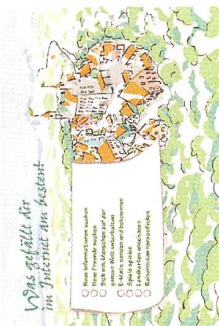 Was gefällt dir
im Internet am besten?
Neue Informationen suchen
Neue Freunde suchen
Sich mit Menschen auf der
ganzen Welt unterhalten
E-Mails senden und bekommen
Spiele spielen
Landkarten einzeichnen